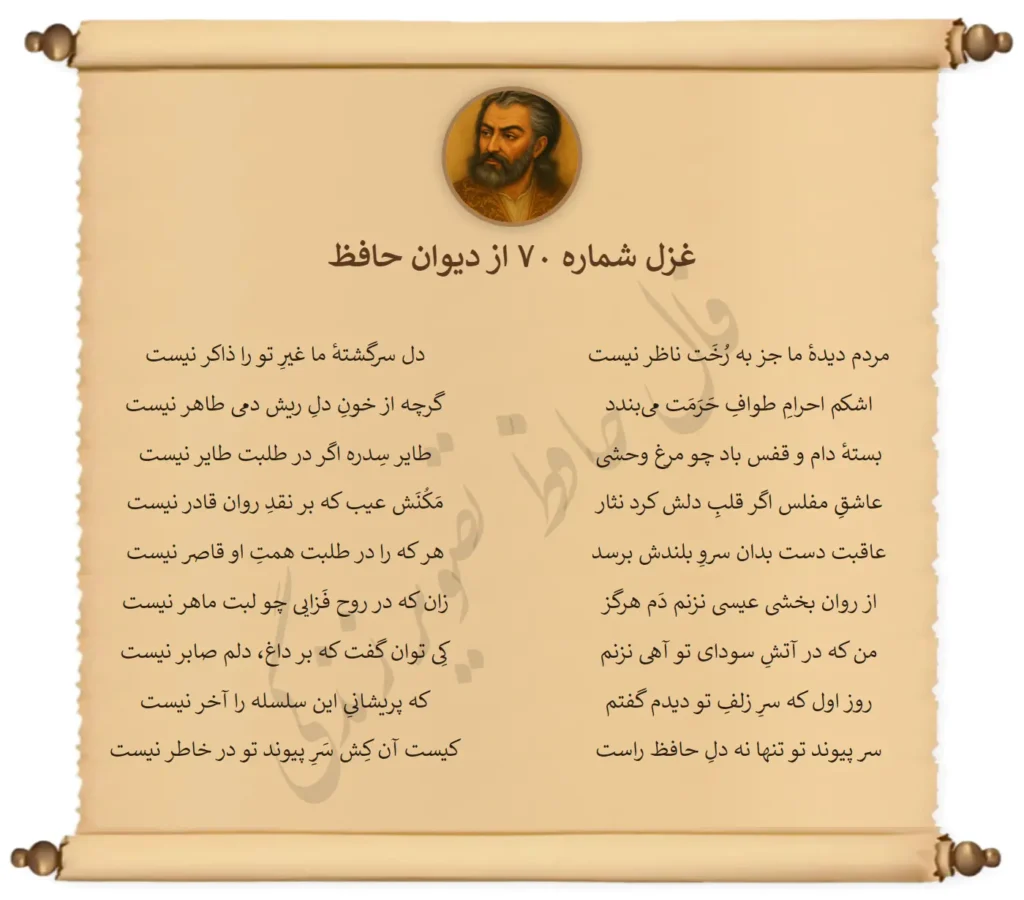 غزل شماره ۷۰ از دیوان حافظ
مردم دیدهٔ ما جز به رُخَت ناظر نیست دل سرگشتهٔ ما غیرِ تو را ذاکر نیست
اشکم احرامِ طوافِ حَرَمَت می‌بندد گرچه از خونِ دلِ ریش دمی طاهر نیست
بستهٔ دام و قفس باد چو مرغ وحشی طایر سِدره اگر در طلبت طایر نیست
عاشقِ مفلس اگر قلبِ دلش کرد نثار مَکُنَش عیب که بر نقدِ روان قادر نیست
عاقبت دست بدان سروِ بلندش برسد هر که را در طلبت همتِ او قاصر نیست
از روان بخشی عیسی نزنم دَم هرگز زان که در روح فَزایی چو لبت ماهر نیست
من که در آتشِ سودای تو آهی نزنم کِی توان گفت که بر داغ، دلم صابر نیست
روز اول که سرِ زلفِ تو دیدم گفتم که پریشانیِ این سلسله را آخر نیست
سر پیوند تو تنها نه دلِ حافظ راست کیست آن کِش سَرِ پیوند تو در خاطر نیست
فال حافظ تصویر زندگی